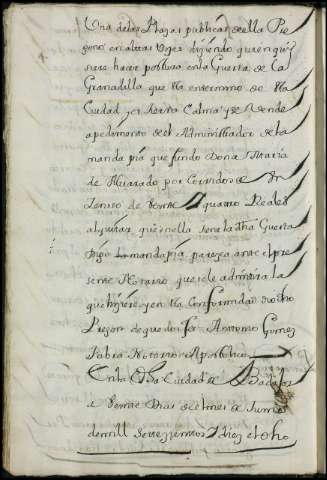 Una de las Plazas publicas de ella Pre
gono en altas Vozes diziendo quien qui
siere hacer postura en la Guerta de la
Granadilla que esta en termino de esta
Ciudad y se Vende
a pedimento de el Administrador de la
manda pia que fundo Dona Maria
de Alvarado por Corridos de un
Zenso de Veinte y quatro Reales
al quitar que en ella tiene la dha Guerta
dha manda pia, paresca ante el pre
sente Notario que se le admitira la
que hiziere y en esta Conformidad dio dho
Pregon de que doi fee Antonio Gomez
Notario Apostolico
En la dha Ciudad de Badajoz
a Veinte Dias de el mes de Junio
de mill setezientos y diez y ocho